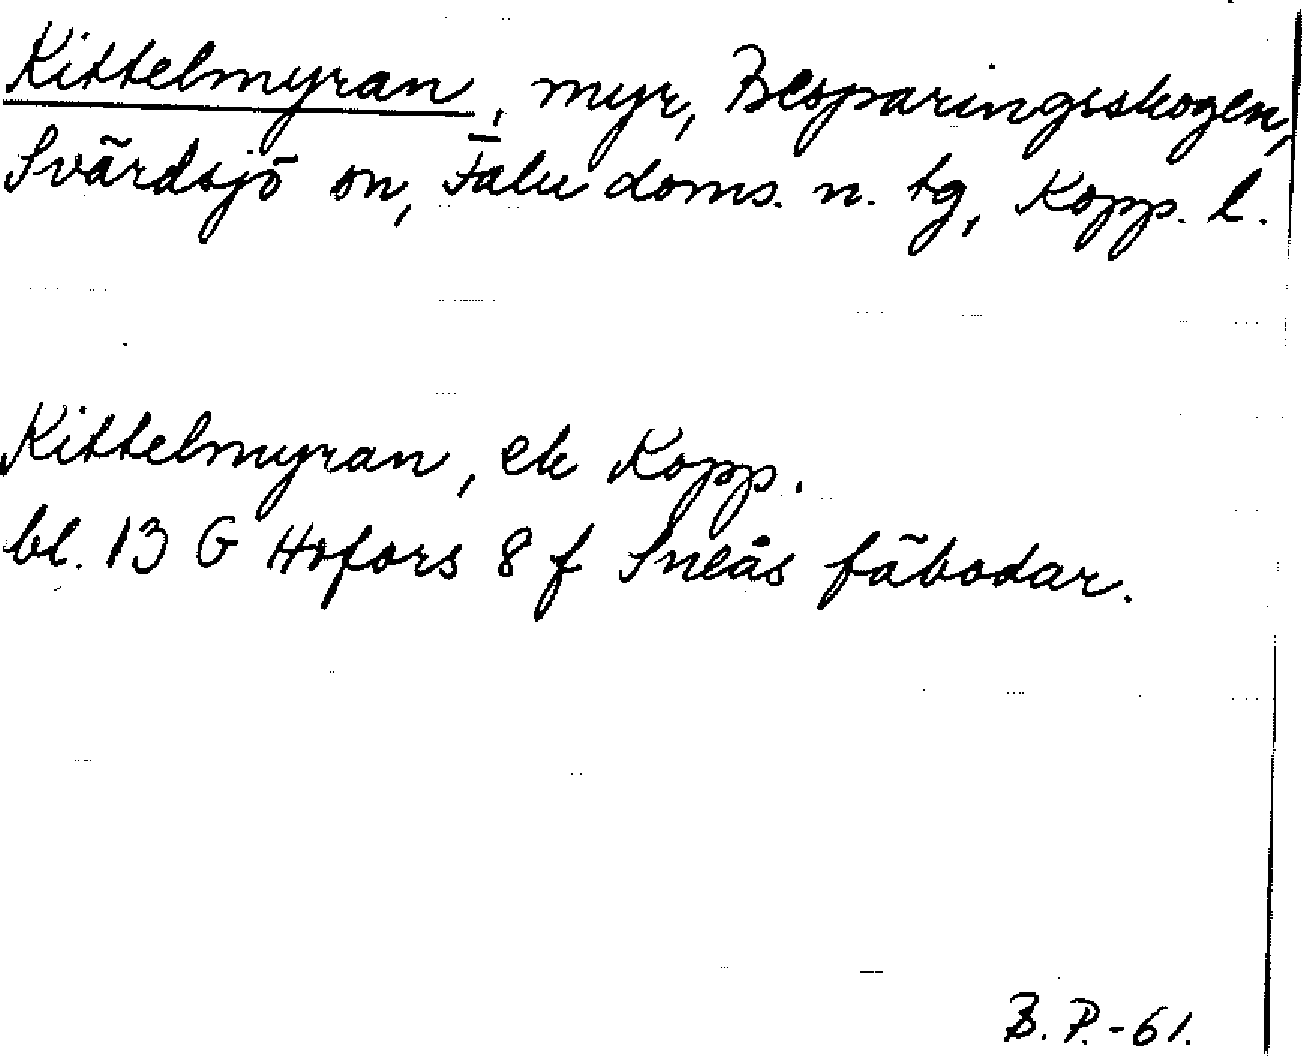 Kittelmyran, myr, Besparingsskogen,
Svärdsjö sn, Falu doms. n. tg, Kopp. l.
Kittelmyran, ek Kopp.
bl. 13 G Hofors 8 f Sneås fäbodar.
B. P. - 61.